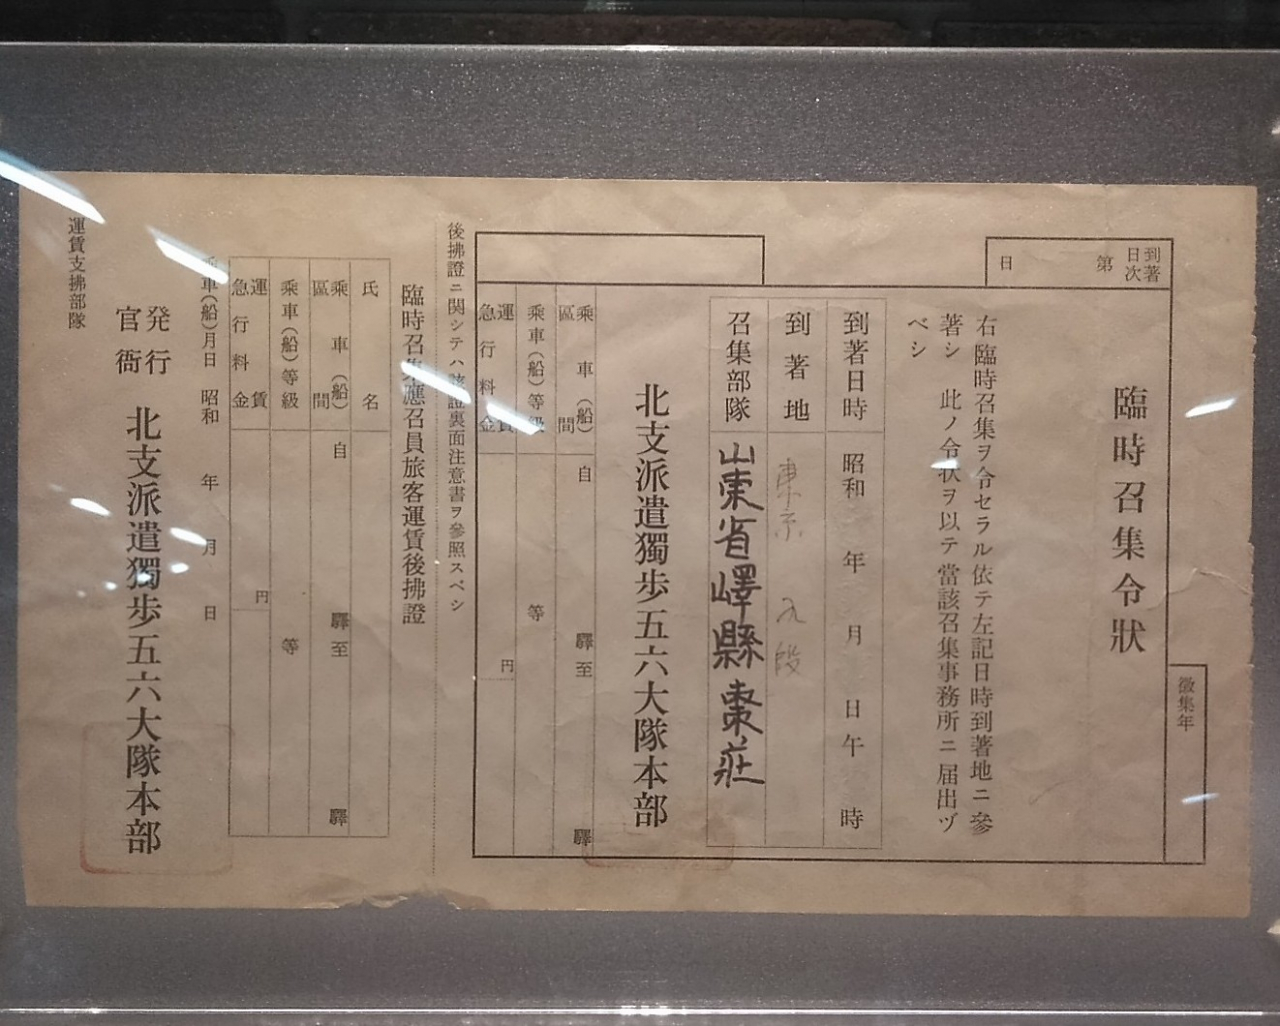 臨時召集令狀
徵集年
到著
日次
第
日
右臨時召集ヲ令セラル依テ左記日時到著地ニ參
著シ 此ノ令状ヲ以テ當該召集事務所ニ届出ヅ
ベシ
到著日時 昭和 年 月 日午 時
到著地 東京 九段
召集部隊 山東省嶧縣棗莊
北支派遣獨步五六大隊本部
乘車(船)
區間 自 驛至 驛
乘車(船)等級 等
運賃
急行料金 円
後拂證ニ関シテハ該證裏面注意書ヲ參照スベシ
臨時召集應召員旅客運賃後拂證
氏名
乘車(船)
區間 自 驛至 驛
乘車(船)等級 等
運賃
急行料金 円
乘車(船)月日 昭和 年 月 日
発行
官衙 北支派遣獨步五六大隊本部
運賃支拂部隊